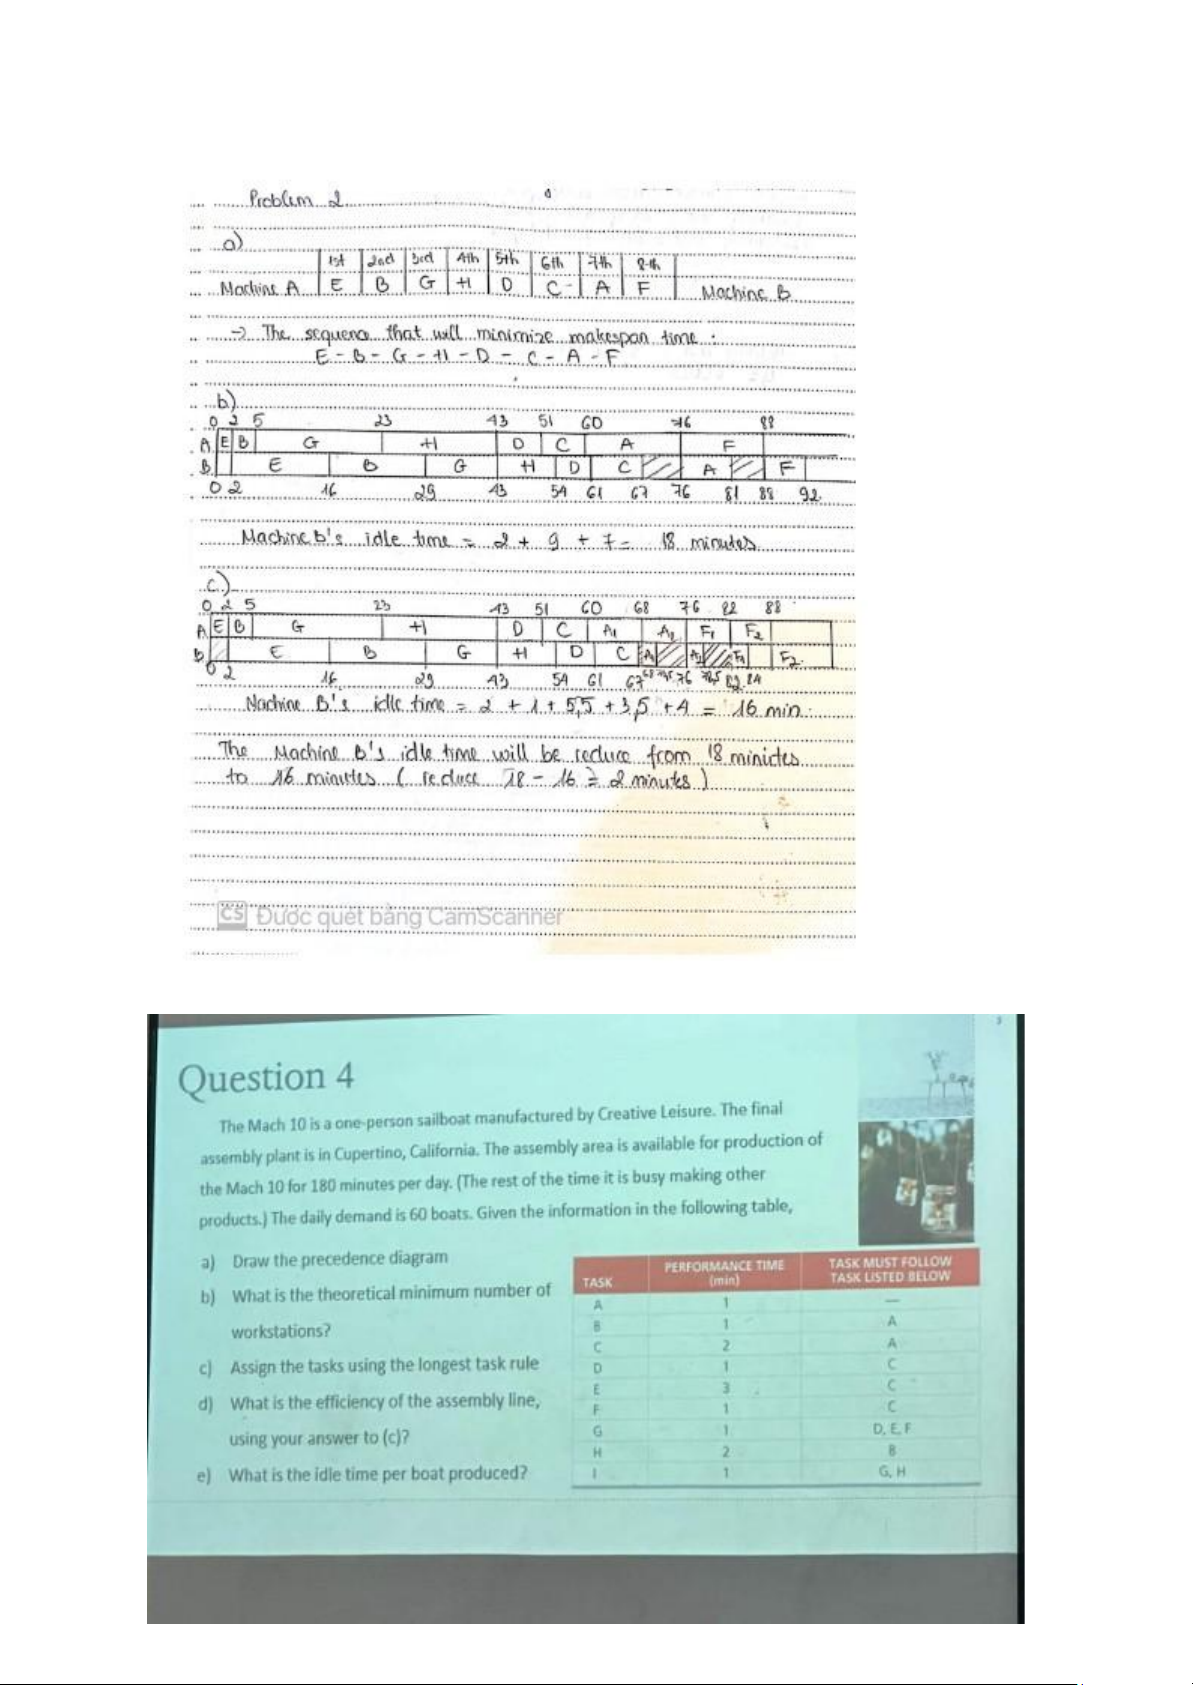 Problem 2
a)
1st 2nd 3rd 4th 5th 6th 7th 8-th
Machine A E B G H D C A F Machine B
-> The sequence that will minimize makespan time :
E - B - G - H - D - C - A - F
b)
0 2 5 23 43 51 60 76 88
A E B G H D C A F
B E B G H D C A F
0 2 16 29 43 54 61 67 76 81 88 92
Machine B's idle time = 2 + 9 + 7 = 18 minutes
c)
0 2 5 23 43 51 60 68 76 82 88
A E B G H D C A1 A2 F1 F2
B E B G H D C A1 A2 F1 F2
0 2 16 29 43 54 61 67 68 76 82 84
Machine B's idle time = 2 + 1 + 5,5 + 3,5 + 4 = 16 min
The Machine B's idle time will be reduce from 18 minictes
to 16 minutes ( reduce 18 - 16 = 2 minutes )
CS Được quét bằng CamScanner
Question 4
The Mach 10 is a one-person sailboat manufactured by Creative Leisure. The final
assembly plant is in Cupertino, California. The assembly area is available for production of
the Mach 10 for 180 minutes per day. (The rest of the time it is busy making other
products.) The daily demand is 60 boats. Given the information in the following table,
a) Draw the precedence diagram
b) What is the theoretical minimum number of
workstations?
c) Assign the tasks using the longest task rule
d) What is the efficiency of the assembly line,
using your answer to (c)?
e) What is the idle time per boat produced?
TASK PERFORMANCE TIME (min) TASK MUST FOLLOW TASK LISTED BELOW
A 1 —
B 1 A
C 2 A
D 1 C
E 3 C
F 1 C
G 1 D, E, F
H 2 B
I 1 G, H